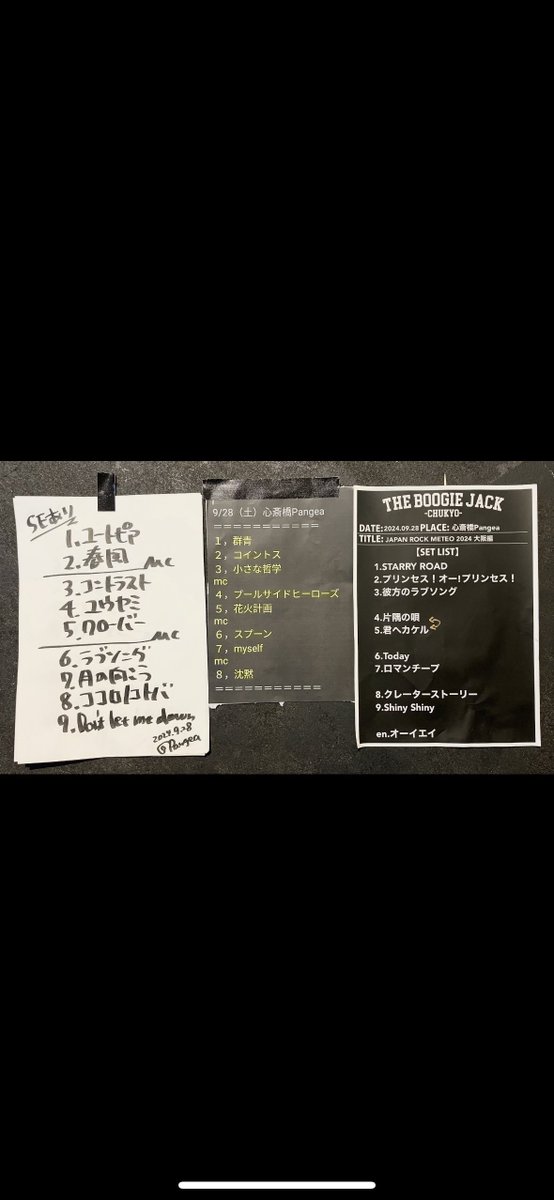 SEあり
1.ユートピア
2.春風
MC
3.コントラスト
4.ユウヤミ
5.クローバー
MC
6.ラブソング
7.月の向こう
8.ココロノコトバ
9.Don't let me down
2024.9.28
@Pangea
9/28（土）心斎橋Pangea
===========
１，群青
２，コイントス
３，小さな哲学
mc
４，プールサイドヒーローズ
５，花火計画
mc
６，スプーン
７，myself
mc
８，沈黙
===========
THE BOOGIE JACK
-CHUKYO-
DATE:2024.09.28 PLACE: 心斎橋Pangea
TITLE: JAPAN ROCK METEO 2024 大阪編
【SET LIST】
1.STARRY ROAD
2.プリンセス！オー!プリンセス！
3.彼方のラブソング
4.片隅の唄
5.君へカケル
6.Today
7.ロマンチープ
8.クレーターストーリー
9.Shiny Shiny
en.オーイエイ